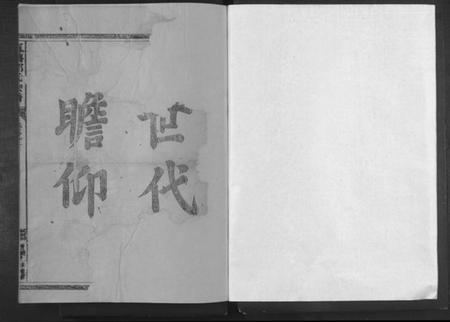 世代
瞻仰